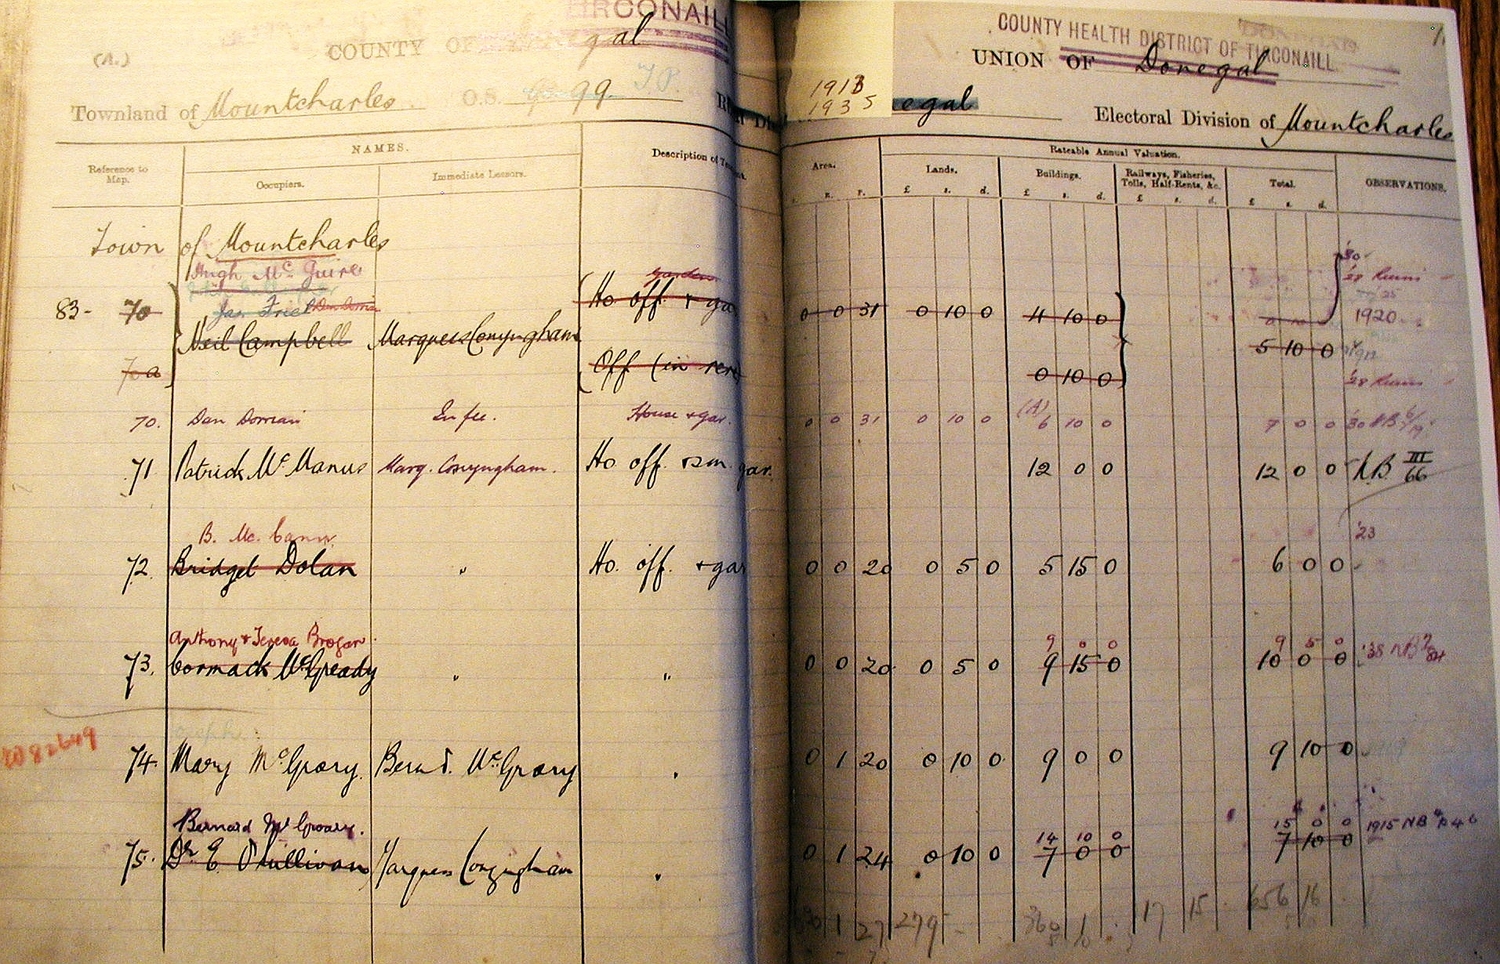 TIRCONAILL
(A.)
COUNTY OF
Townland of Mountcharles O.S. 99
1913
1935
COUNTY HEALTH DISTRICT OF TIRCONAILL
UNION OF Donegal
egal Electoral Division of Mountcharles
Reference to Map. NAMES. Occupiers. Immediate Lessors. Description of
Area. R. P. Rateable Annual Valuation. Lands. £ s. d. Buildings. £ s. d. Railways, Fisheries, Tolls, Half-Rents, &c. £ s. d. Total. £ s. d. OBSERVATIONS.
Town of Mountcharles
Hugh McGuire garden '30
'28 Ruins
83- 70 Jas. Friel Dan Dorrian Ho off + ga 0 0 31 0 10 0 4 10 0 1920
Neil Campbell Marquess Conyngham 5 10 0
70a Off (in rere) 0 10 0 '28 Ruins
70. Dan Dorrian In fee. House + gar. 0 0 31 0 10 0 (A) 6 10 0 7 0 0 '30
71 Patrick McManus Marq. Conyngham. Ho off. + sm. gar. 12 0 0 12 0 0 NB III/66
B. McCann '23
72. Bridget Dolan " Ho. off. + gar 0 0 20 0 5 0 5 15 0 6 0 0
Anthony + Teresa Brogan 9 0 0 9 5 0
73. Cormack McGready " " 0 0 20 0 5 0 9 15 0 10 0 0 '38 NB
W82649
74. Mary McGrory. Bernd. McGrory " 0 1 20 0 10 0 9 0 0 9 10 0
Bernard McGrory. 14 10 0 15 0 0 1915 NB
75. Dr E. O'Sullivan Marquess Conyngham " 0 1 24 0 10 0 7 0 0 7 10 0
1 27 279 360 1 17 15 656 16